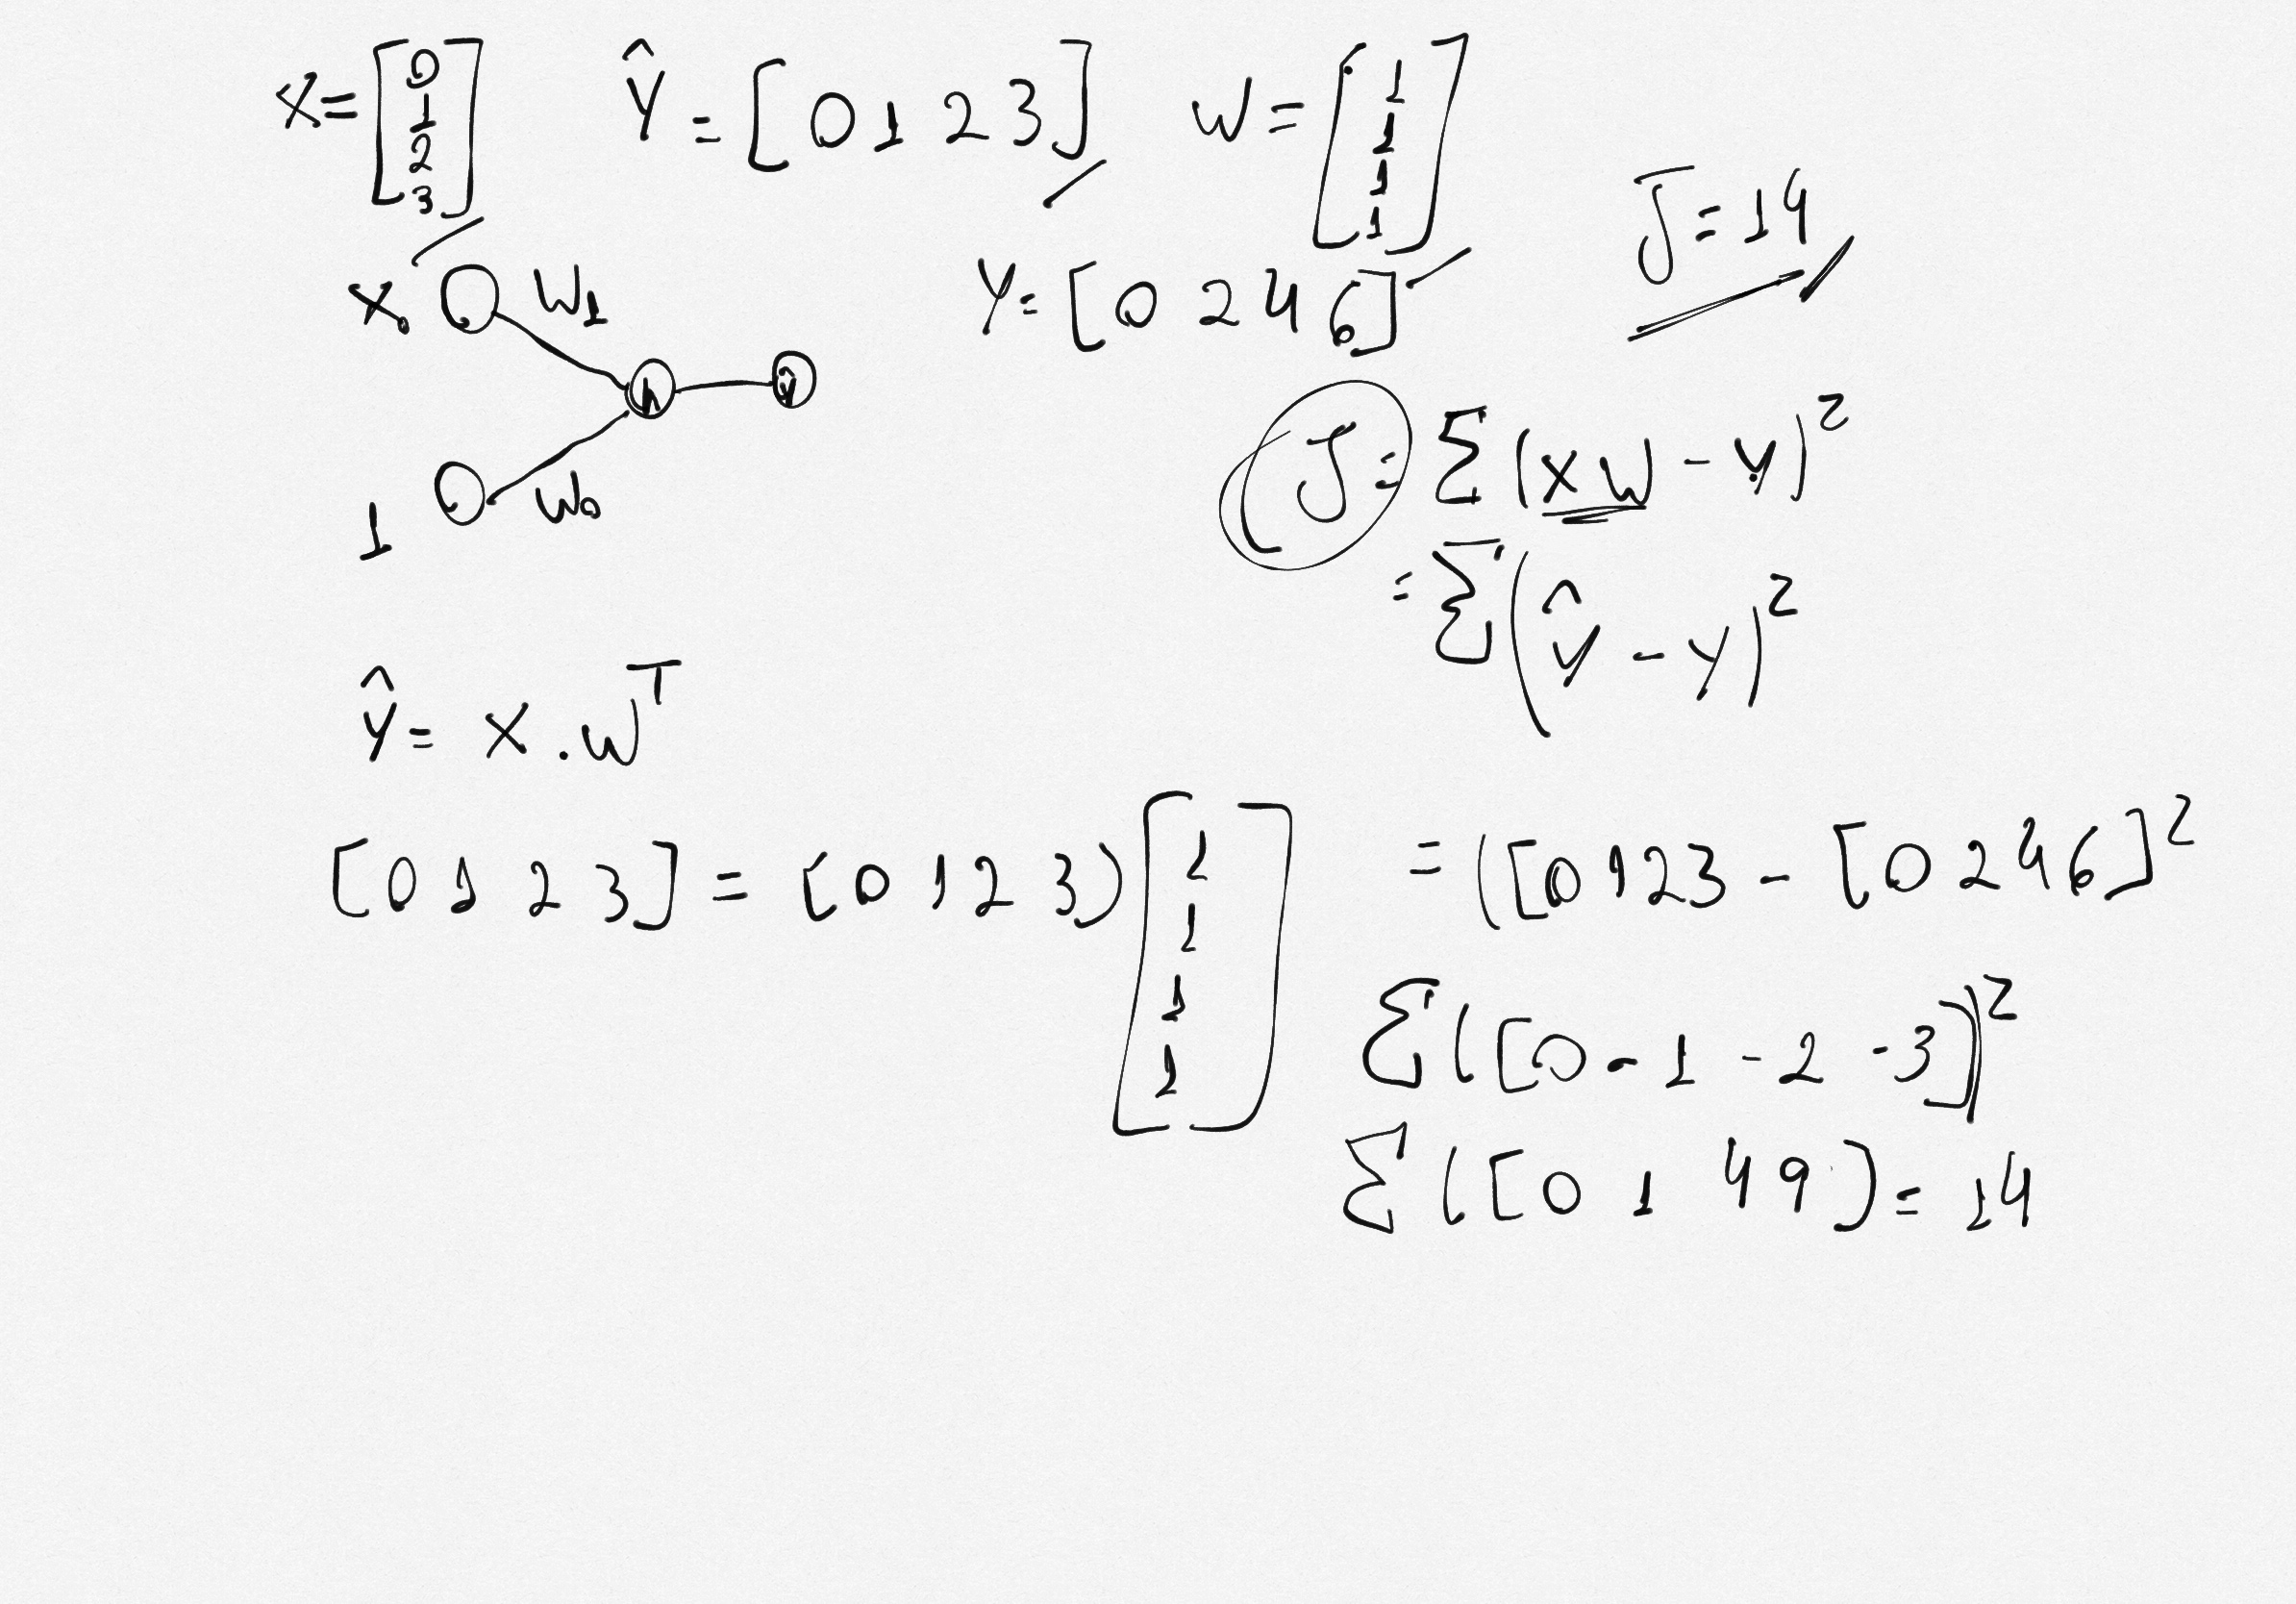 X = [0 1 2 3] Ŷ = [0 1 2 3] W = [1 1 1 1]
J = 14
X W1 Y = [0 2 4 6]
h ŷ
1 W0
J = Σ(XW - Y)²
= Σ(Ŷ - Y)²
Ŷ = X . Wᵀ
[0 1 2 3] = [0 1 2 3) [1 1 1 1]
= ([0 1 2 3 - [0 2 4 6]²
Σ([0 -1 -2 -3])²
Σ([0 1 4 9) = 14